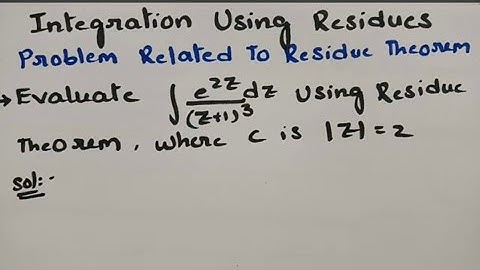 Integration Using Residues
Problem Related To Residue Theorem
→ Evaluate ∫ e^2z dz / (z+1)^3 using Residue
Theorem, where c is |z| = 2
Sol:-